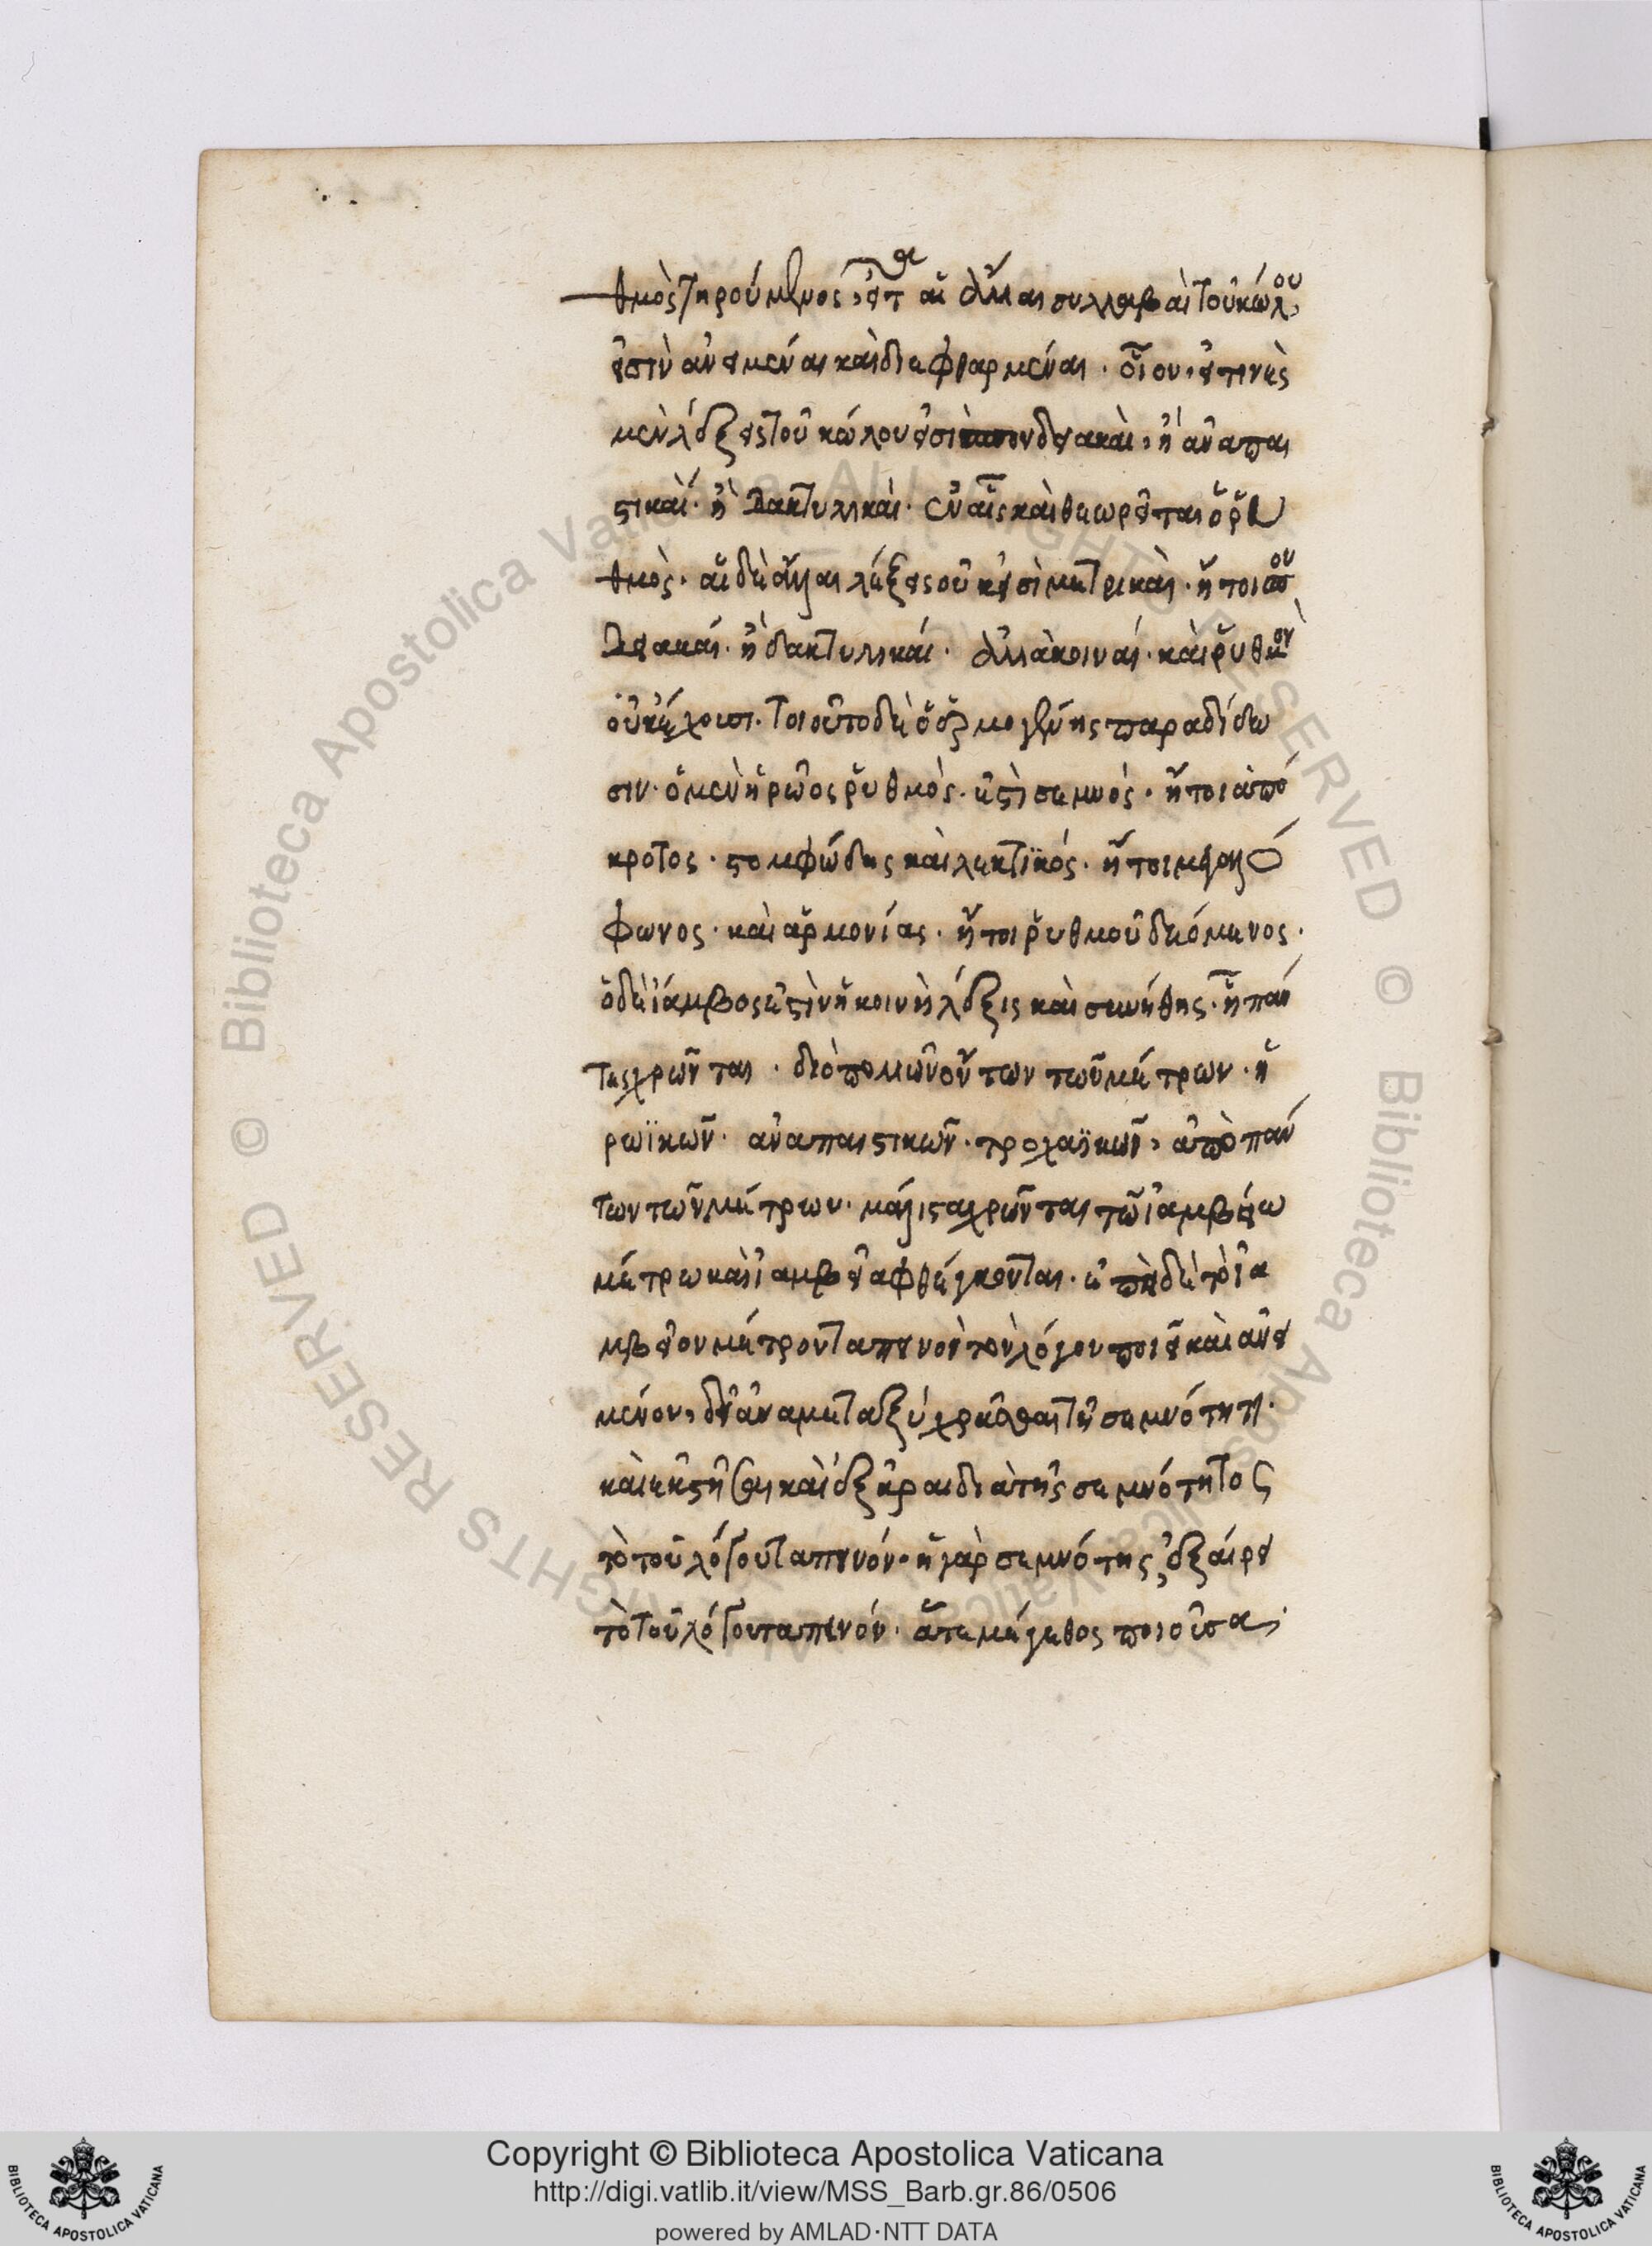 θμὸς τηρούμενος, εἶτα αἱ ἄλλαι συλλαβαὶ τοῦ κώλου
εἰσὶν ἀνειμέναι καὶ διεφθαρμέναι· οἷον, εἰ τινὲς
μὲν λέξεις τοῦ κώλου εἰσὶ σπονδειακαὶ, ἢ ἀναπαι
στικαί· ἢ δακτυλικαὶ· ἐν αἷς καὶ θεωρεῖται ὁ ῥυ
θμὸς· αἱ δὲ ἄλλαι λέξεις οὐκ εἰσὶ μετρικαὶ· ἤτοι σπον
δειακαί· ἢ δακτυλικαί· ἀλλὰ κοιναί· καὶ ῥυθμὸν
οὐκ ἔχουσι. τοιοῦτο δὲ ὁ ἑρμογένης παραδίδω
σιν· ὁ μὲν ἡρῶος ῥυθμὸς· ἐστὶ σεμνός· ἤτοι ἀπό
κροτος· στομφώδης καὶ λεκτικός· ἤτοι μεγαλό
φωνος· καὶ ἁρμονίας· ἤτοι ῥυθμοῦ δεόμενος·
ὁ δὲ ἴαμβος ἐστὶν ἡ κοινὴ λέξις καὶ συνήθης· ᾗ πάν
τες χρῶνται· διὸ πολλῶν ὄντων τῶν μέτρων· ἡ
ρωϊκῶν· ἀναπαιστικῶν· τροχαϊκῶν, ἀπὸ πάν
των τῶν μέτρων· μάλιστα χρῶνται τῷ ἰαμβείω
μέτρω καὶ ἰαμβεῖα φθέγγονται· ἐπεὶ δὲ τὸ ἰα
μβεῖον μέτρον ταπεινὸν τὸν λόγον ποιεῖ καὶ ἀνει
μένον, δεῖ ἀναμεταξὺ χρῆσθαι τῇ σεμνότητι·
καὶ ἐκστῆσαι καὶ ἐξᾶραι διὰ τῆς σεμνότητος
τὸ τοῦ λόγου ταπεινόν· ἡ γὰρ σεμνότης, ἐξαίρει
τὸ τοῦ λόγου ταπεινόν· ἅτε μέγεθος ποιοῦσα·
Copyright © Biblioteca Apostolica Vaticana
http://digi.vatlib.it/view/MSS_Barb.gr.86/0506
powered by AMLAD·NTT DATA